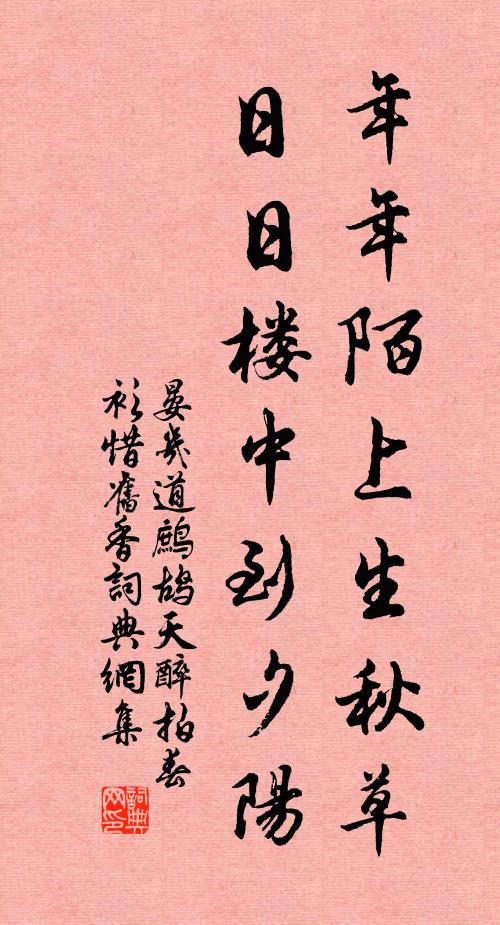 年年陌上生秋草
日日楼中到夕陽
晏幾道鷓鴣天醉拍春
衫惜舊香詞典網集
詞典网印